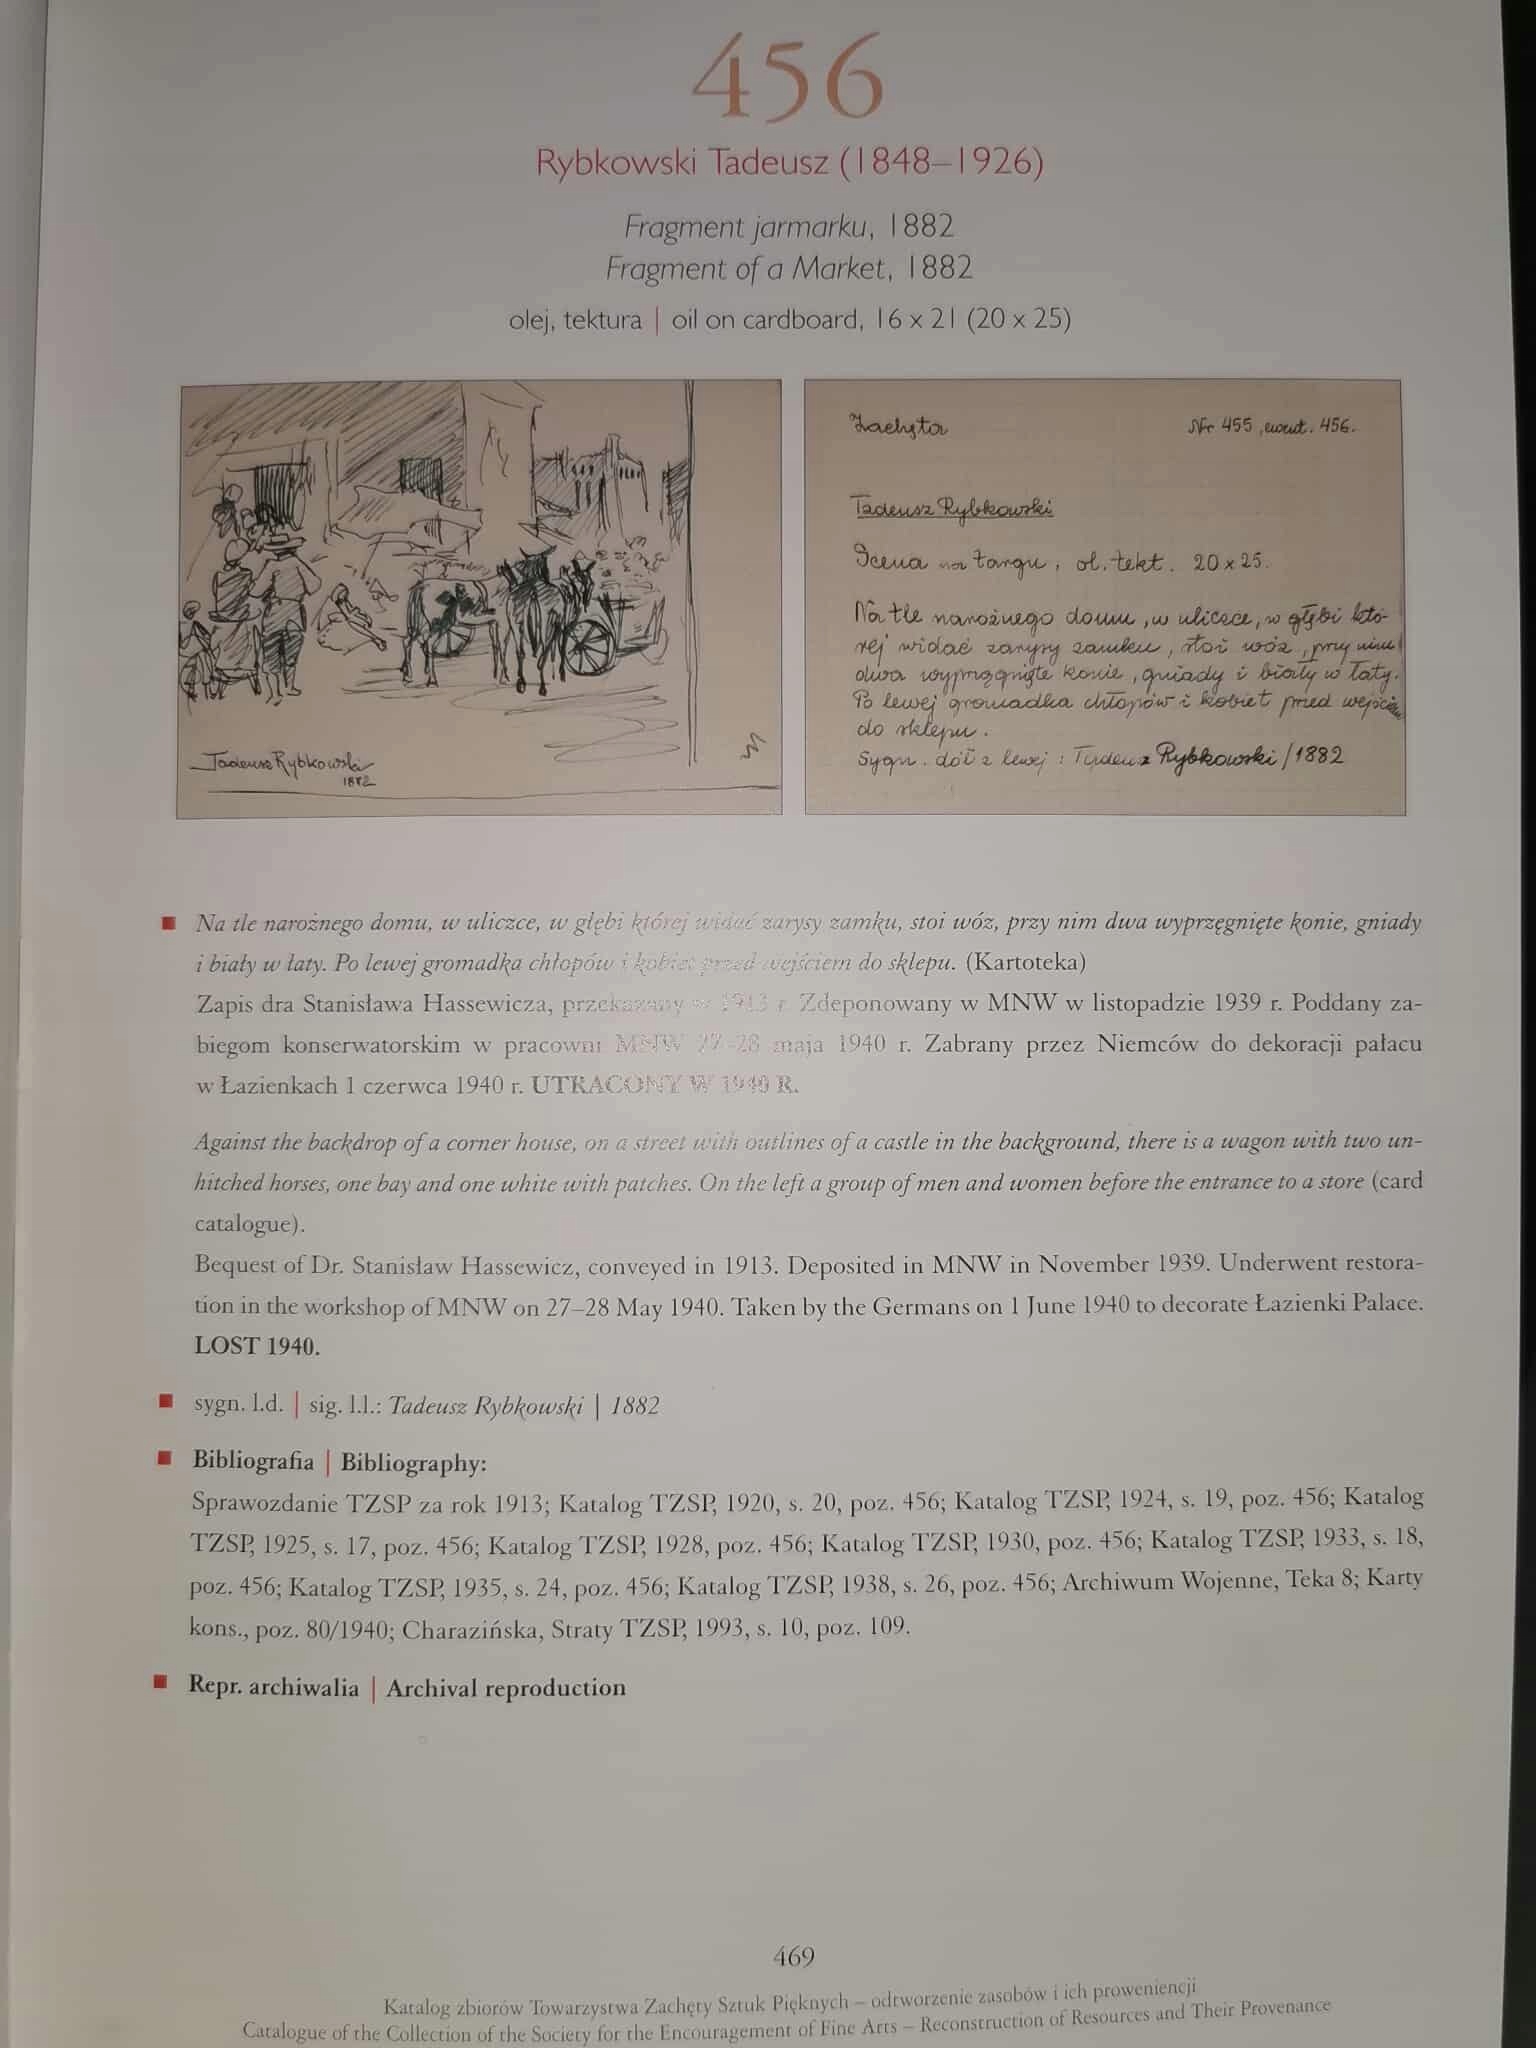 456
Rybkowski Tadeusz (1848–1926)
Fragment jarmarku, 1882
Fragment of a Market, 1882
olej, tektura | oil on cardboard, 16 x 21 (20 x 25)
Tadeusz Rybkowski
1882
Zachęta
Nr 455, inwent. 456.
Tadeusz Rybkowski
Scena na targu, ol. tekt. 20 x 25.
Na tle narożnego domu, w uliczce, w głębi któ-
rej widać zarysy zamku, stoi wóz, przy nim
dwa wyprzągnięte konie, gniady i biały w łaty.
Po lewej gromadka chłopów i kobiet przed wejściem
do sklepu.
Sygn. dół z lewej: Tadeusz Rybkowski/1882
Na tle narożnego domu, w uliczce, w głębi której widać zarysy zamku, stoi wóz, przy nim dwa wyprzęgnięte konie, gniady
i biały w łaty. Po lewej gromadka chłopów i kobiet przed wejściem do sklepu. (Kartoteka)
Zapis dra Stanisława Hassewicza, przekazany w 1913 r. Zdeponowany w MNW w listopadzie 1939 r. Poddany za-
biegom konserwatorskim w pracowni MNW 27–28 maja 1940 r. Zabrany przez Niemców do dekoracji pałacu
w Łazienkach 1 czerwca 1940 r. UTRACONY W 1940 R.
Against the backdrop of a corner house, on a street with outlines of a castle in the background, there is a wagon with two un-
hitched horses, one bay and one white with patches. On the left a group of men and women before the entrance to a store (card
catalogue).
Bequest of Dr. Stanisław Hassewicz, conveyed in 1913. Deposited in MNW in November 1939. Underwent restora-
tion in the workshop of MNW on 27–28 May 1940. Taken by the Germans on 1 June 1940 to decorate Łazienki Palace.
LOST 1940.
sygn. l.d. | sig. l.l.: Tadeusz Rybkowski | 1882
Bibliografia | Bibliography:
Sprawozdanie TZSP za rok 1913; Katalog TZSP, 1920, s. 20, poz. 456; Katalog TZSP, 1924, s. 19, poz. 456; Katalog
TZSP, 1925, s. 17, poz. 456; Katalog TZSP, 1928, poz. 456; Katalog TZSP, 1930, poz. 456; Katalog TZSP, 1933, s. 18,
poz. 456; Katalog TZSP, 1935, s. 24, poz. 456; Katalog TZSP, 1938, s. 26, poz. 456; Archiwum Wojenne, Teka 8; Karty
kons., poz. 80/1940; Charazińska, Straty TZSP, 1993, s. 10, poz. 109.
Repr. archiwalia | Archival reproduction
469
Katalog zbiorów Towarzystwa Zachęty Sztuk Pięknych – odtworzenie zasobów i ich proweniencji
Catalogue of the Collection of the Society for the Encouragement of Fine Arts – Reconstruction of Resources and Their Provenance